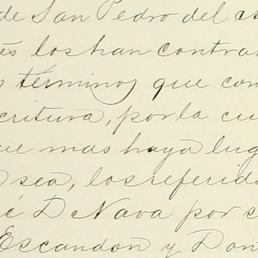 de San Pedro del
és los han contra
términos que con
critura, por la cu
ue mas haya lug
sea, los referid
é D Nava por s
Escandon y Don